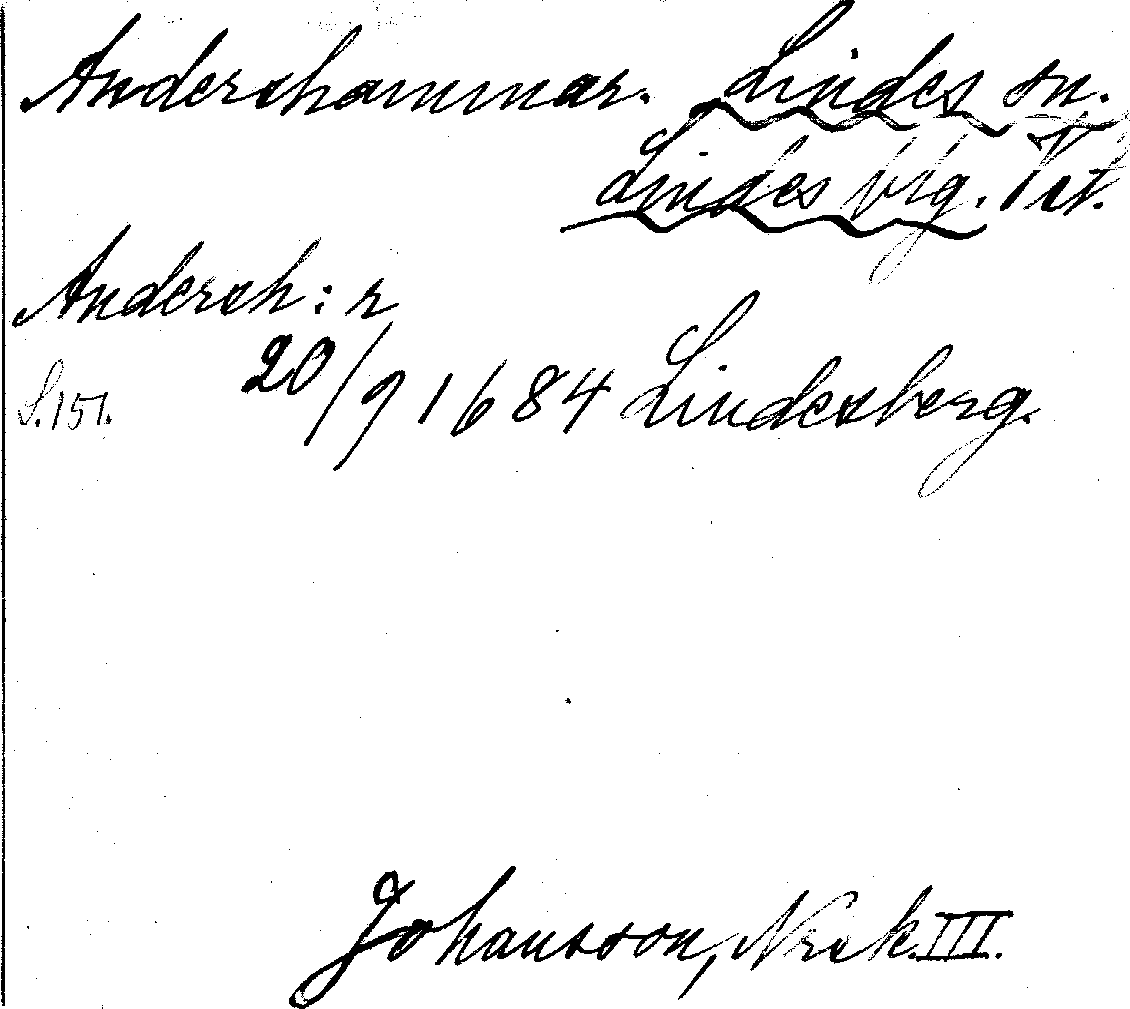 Andershammar. Lindes sn.
Lindes btg. Vst.
Andersh:r
S.151. 20/9 1684 Lindesberg.
Johansson, Nrsk. III.